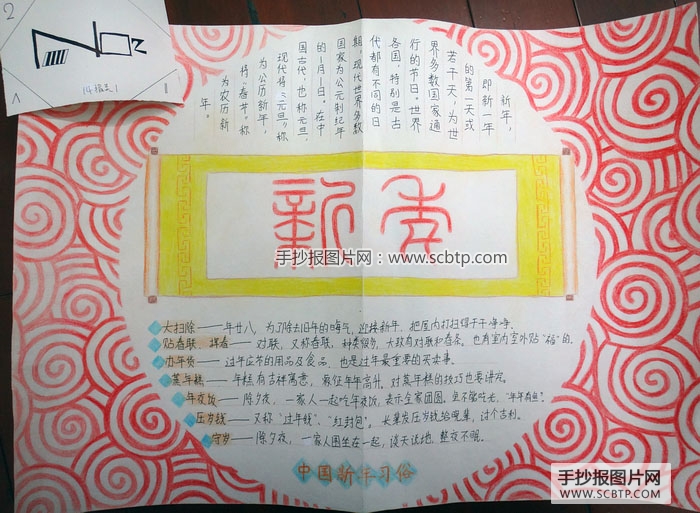 2
新年，
即新一年
的第一天或
若干天，为世
界多数国家通
行的节日。世界
各国，特别是古
代都有不同的日
期，现代世界多数
国家为公元制纪年
的1月1日。在中
国古代，也称元旦，
现代将“元旦”称
为公历新年，
将“春节”称
为农历新
年。
新年
手抄报图片网：www.scbtp.com
大扫除——年廿八，为了除去旧年的晦气，迎接新年，把屋内打扫得干干净净。
贴春联、挥春——对联，又称春联，种类很多，大致有对联和春条。也有室内室外贴“福”的。
办年货——过年应节的用品及食品，也是过年最重要的买卖事。
蒸年糕——年糕有吉祥寓意，象征年年高升。对蒸年糕的技巧也要讲究。
年夜饭——除夕夜，一家人一起吃年夜饭，表示全家团圆。鱼不能吃光，“年年有鱼”。
压岁钱——又称“过年钱”、“红封包”。长辈发压岁钱给晚辈，讨个吉利。
守岁——除夕夜，一家人围坐在一起，谈天说地，整夜不眠。
中国新年习俗
手抄报图片网
WWW.SCBTP.COM